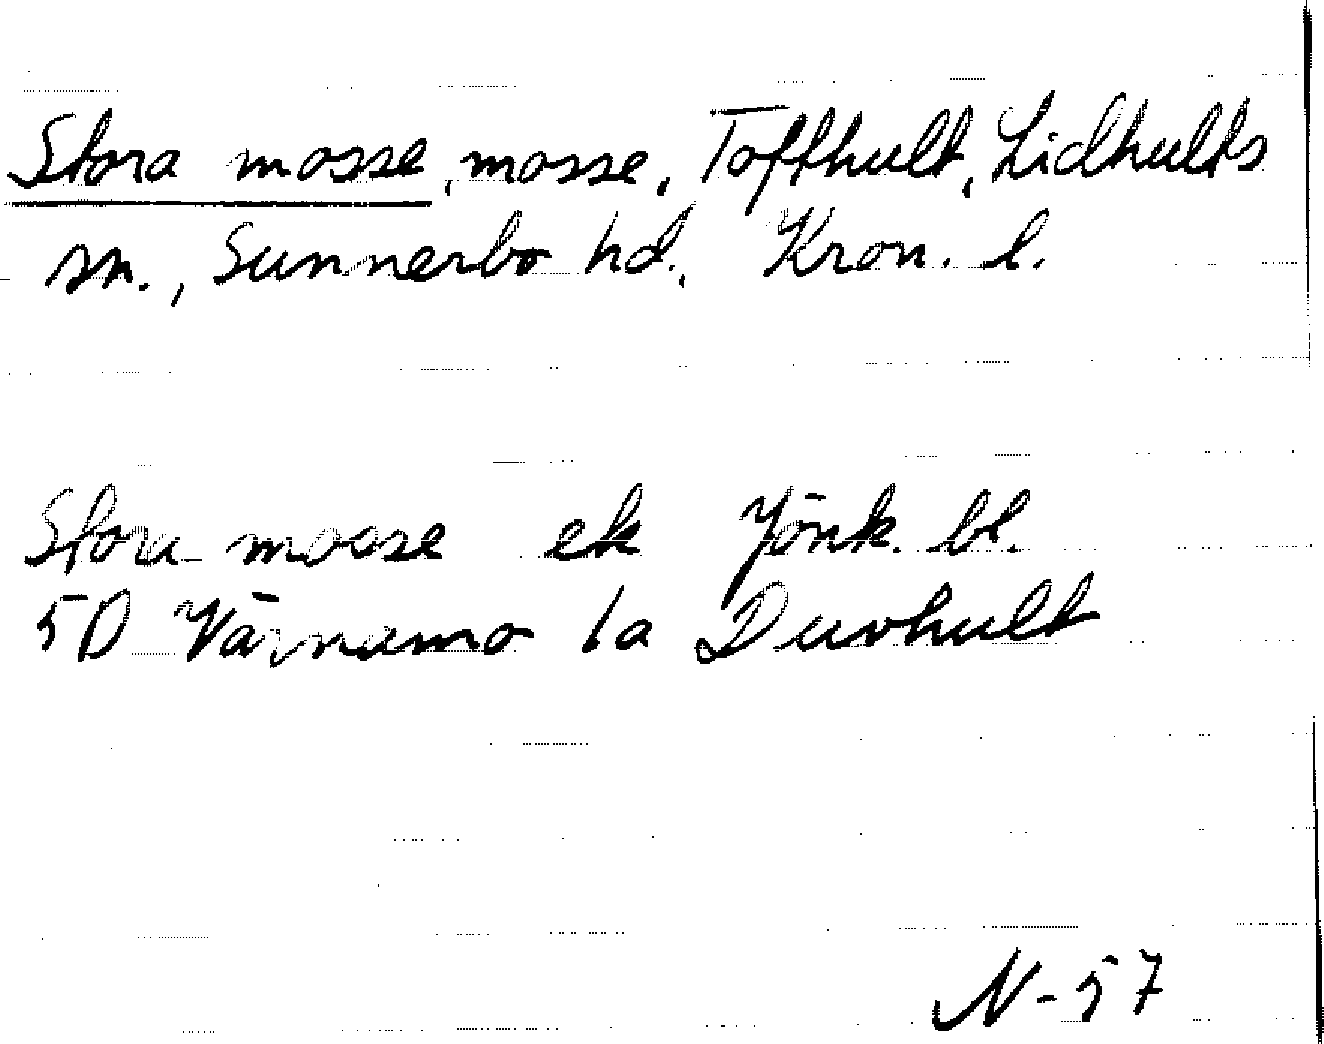 Stora mosse, mosse, Tofthult, Lidhults
sn., Sunnerbo hd., Kron. l.
Stora mosse ek Jönk. bl.
5D Värnamo 1a Duvhult
N-57